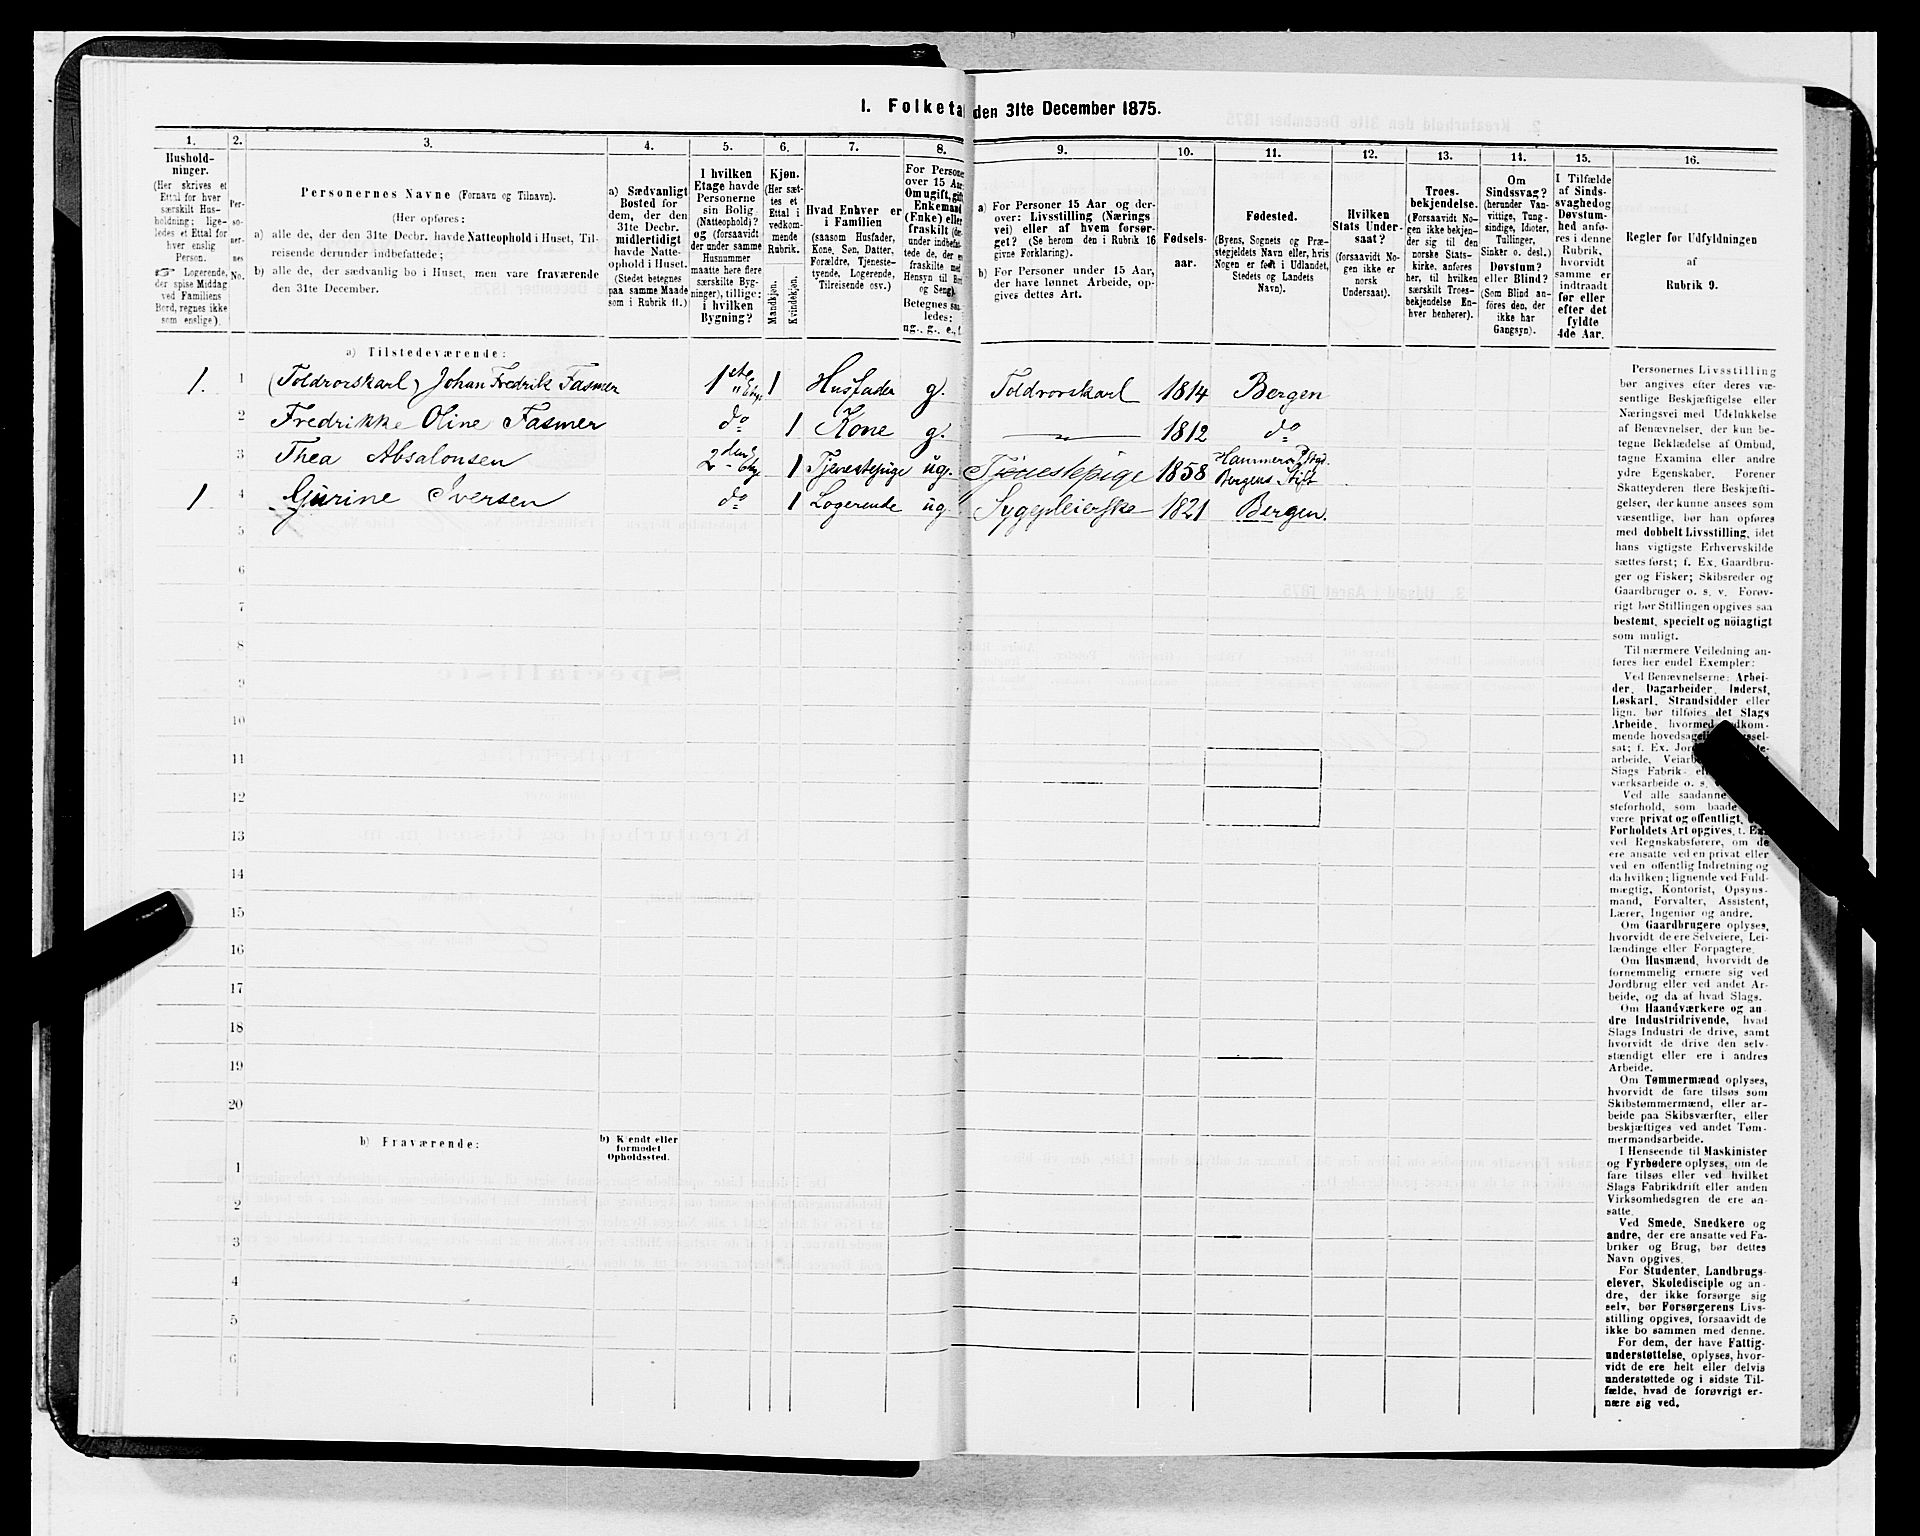 I. Folketa den 31te December 1875.
1.
2.
3.
4.
5.
6.
7.
8.
9.
10.
11.
12.
13.
14.
15.
16.
Hushold-
ninger.
(Her skrives et
Ettal for hver
særskilt Hus-
holdning; lige-
ledes et Ettal for
hver enslig
Person.
☞ Logerende,
der spise Middag
ved Familiens
Bord, regnes ikke
som enslige).
Per-
so-
ner-
nes
No.
Personernes Navne (Fornavn og Tilnavn).
(Her opføres:
a) alle de, der den 31te Decbr. havde Natteophold i Huset, Til-
reisende derunder indbefattede;
b) alle de, der sædvanlig bo i Huset, men vare fraværende
den 31te December.
a) Sædvanligt
Bosted for
dem, der den
31te Decbr.
midlertidigt
havde Natte-
ophold i Huset.
(Stedet betegnes
paa samme Maade
som i Rubrik 11.)
I hvilken
Etage havde
Personerne
sin Bolig
(Natteophold)?
og (forsaavidt
der under samme
Husnummer
maatte høre flere
særskilte Byg-
ninger), tillige:
i hvilken
Bygning?
Kjøn.
(Her sæt-
tes et
Ettal i
vedkom-
mende
Rubrik.
Mandkjøn.
Kvindekjøn.
Hvad Enhver er
i Familien
(saasom Husfader,
Kone, Søn, Datter,
Forældre, Tjeneste-
tyende, Logerende,
Tilreisende osv.)
For Persone
over 15 Aar
Om ugift, gift
Enkemand
(Enke) elle
fraskilt (der-
under indbefat-
tede de, der er
fraskilte med
Hensyn til Bo
og Seng).
Betegnes saa-
ledes:
ug., g., e., f.
a) For Personer 15 Aar og der-
over: Livsstilling (Nærings
vei) eller af hvem forsør-
get? (Se herom den i Rubrik 16
givne Forklaring).
b) For Personer under 15 Aar,
der have lønnet Arbeide, op-
gives dettes Art.
Fødsels-
aar.
Fødested.
(Byens, Sognets og Præ-
stegjeldets Navn eller, hvis
Nogen er født i Udlandet,
Stedets og Landets
Navn).
Hvilken
Stats Under-
saat?
(forsaavidt No-
gen ikke er
norsk
Undersaat).
Troes-
bekjendelse.
(Forsaavidt No-
gen ikke bekjen-
der sig til den
norske Stats-
kirke, anføres
her, til hvilken
særskilt Troes-
bekjendelse En-
hver henhører).
Om
Sindssvag?
(herunder Van-
vittige, Tung-
sindige, Idioter,
Tullinger,
Sinker o. desl.)
Døvstum?
eller Blind?
(Som Blind an-
føres den, der
ikke har
Gangsyn).
I Tilfælde
af Sinds-
svaghed og
Døvstum-
hed anfø-
res i denne
Rubrik,
hvorvidt
samme er
indtraadt
før eller
efter det
fyldte
4de Aar.
Regler før Udfyldningen
af
Rubrik 9.
a) Tilstedeværende:
1. 1 (Toldrorskarl) Johan Fredrik Fasmer 1ste Etge 1 Husfader g. Toldrorskarl 1814 Bergen
2 Fredrikke Oline Fasmer do 1 Kone g. 1812 do
3 Thea Absalonsen 2den Etge 1 Tjenestepige ug. Tjenestepige 1858 Hammers Pstgd. Bergens Stift
1 4 Gurine Iversen do 1 Logerende ug. Sygepleierske 1821 Bergen.
5
6
7
8
9
10
11
12
13
14
15
16
17
18
19
20
b) Fraværende:
b) Kjendt eller
formodet
Opholdssted.
1
2
3
4
5
6
Personernes Livsstilling
bør angives efter deres væ-
sentlige Beskjæftigelse eller
Næringsvei med Udelukkelse
af Benævnelser, der kun be-
tegne Beklædelse af Ombud,
tagne Examina eller andre
ydre Egenskaber. Forener
Skatteyderen flere Beskjæfti-
gelser, der kunne ansees som
væsentlige, bør han opføres
med dobbelt Livsstilling, idet
hans vigtigste Erhvervskilde
sættes først; f. Ex. Gaardbru-
ger og Fisker; Skibsreder og
Gaardbruger o. s. v. Forøv-
rigt bør Stillingen opgives saa
bestemt, specielt og nöiagtigt
som muligt.
Til nærmere Veiledning an-
føres her endel Exempler:
Ved Benævnelserne: Arbei-
der, Dagarbeider, Inderst,
Løskarl, Strandsidder eller
lign. bør tilføies det Slags
Arbeide, hvormed
mende
sat; f. Ex.
arbeide,
Slags Fabrik-
værksarbeide o. s.
Ved alle saadanne
steforhold, som baade
være privat og offentligt,
Forholdets Art opgives, t. Ex.
ved Regnskabsførere, om de
ere ansatte ved en privat eller
ved en offentlig Indretning og
da hvilken; lignende ved Fuld-
mægtig, Kontorist, Opsyns-
mand, Forvalter, Assistent,
Lærer, Ingeniør og andre.
Om Gaardbrugere oplyses,
hvorvidt de ere Selveiere, Lei-
lændinge eller Forpagtere.
Om Husmænd, hvorvidt de
fornemmelig ernære sig ved
Jordbrug eller ved andet Ar-
beide, og da af hvad Slags.
Om Haandværkere og an-
dre Industridrivende, hvad
Slags Industri de drive, samt
hvorvidt de drive den selv-
stændigt eller ere i andres
Arbeide.
Om Tømmermænd oplyses,
hvorvidt de fare tilsøs som
Skibstømmermænd, eller ar-
beide paa Skibsværfter, eller
beskjæftiges ved andet Tøm-
mermandsarbeide.
I Henseende til Maskinister
og Fyrbødere oplyses, om de
fare tilsøs eller ved hvilket
Slags Fabrikdrift eller anden
Virksomhedsgren de ere an-
satte.
Ved Smede, Snedkere og
andre, der ere ansatte ved Fa-
briker og Brug, bør dettes
Navn opgives.
For Studenter, Landbrugs-
elever, Skoledisciple og an-
dre, der ikke forsørge sig
selv, bør Forsørgerens Livs-
stilling opgives, forsaavidt de
ikke bo sammen med denne.
For dem, der have Fattig-
understøttelse, oplyses, hvor-
vidt de ere helt eller delvis
understøttede og i sidste Til-
fælde, hvad de forøvrigt er-
nære sig ved.